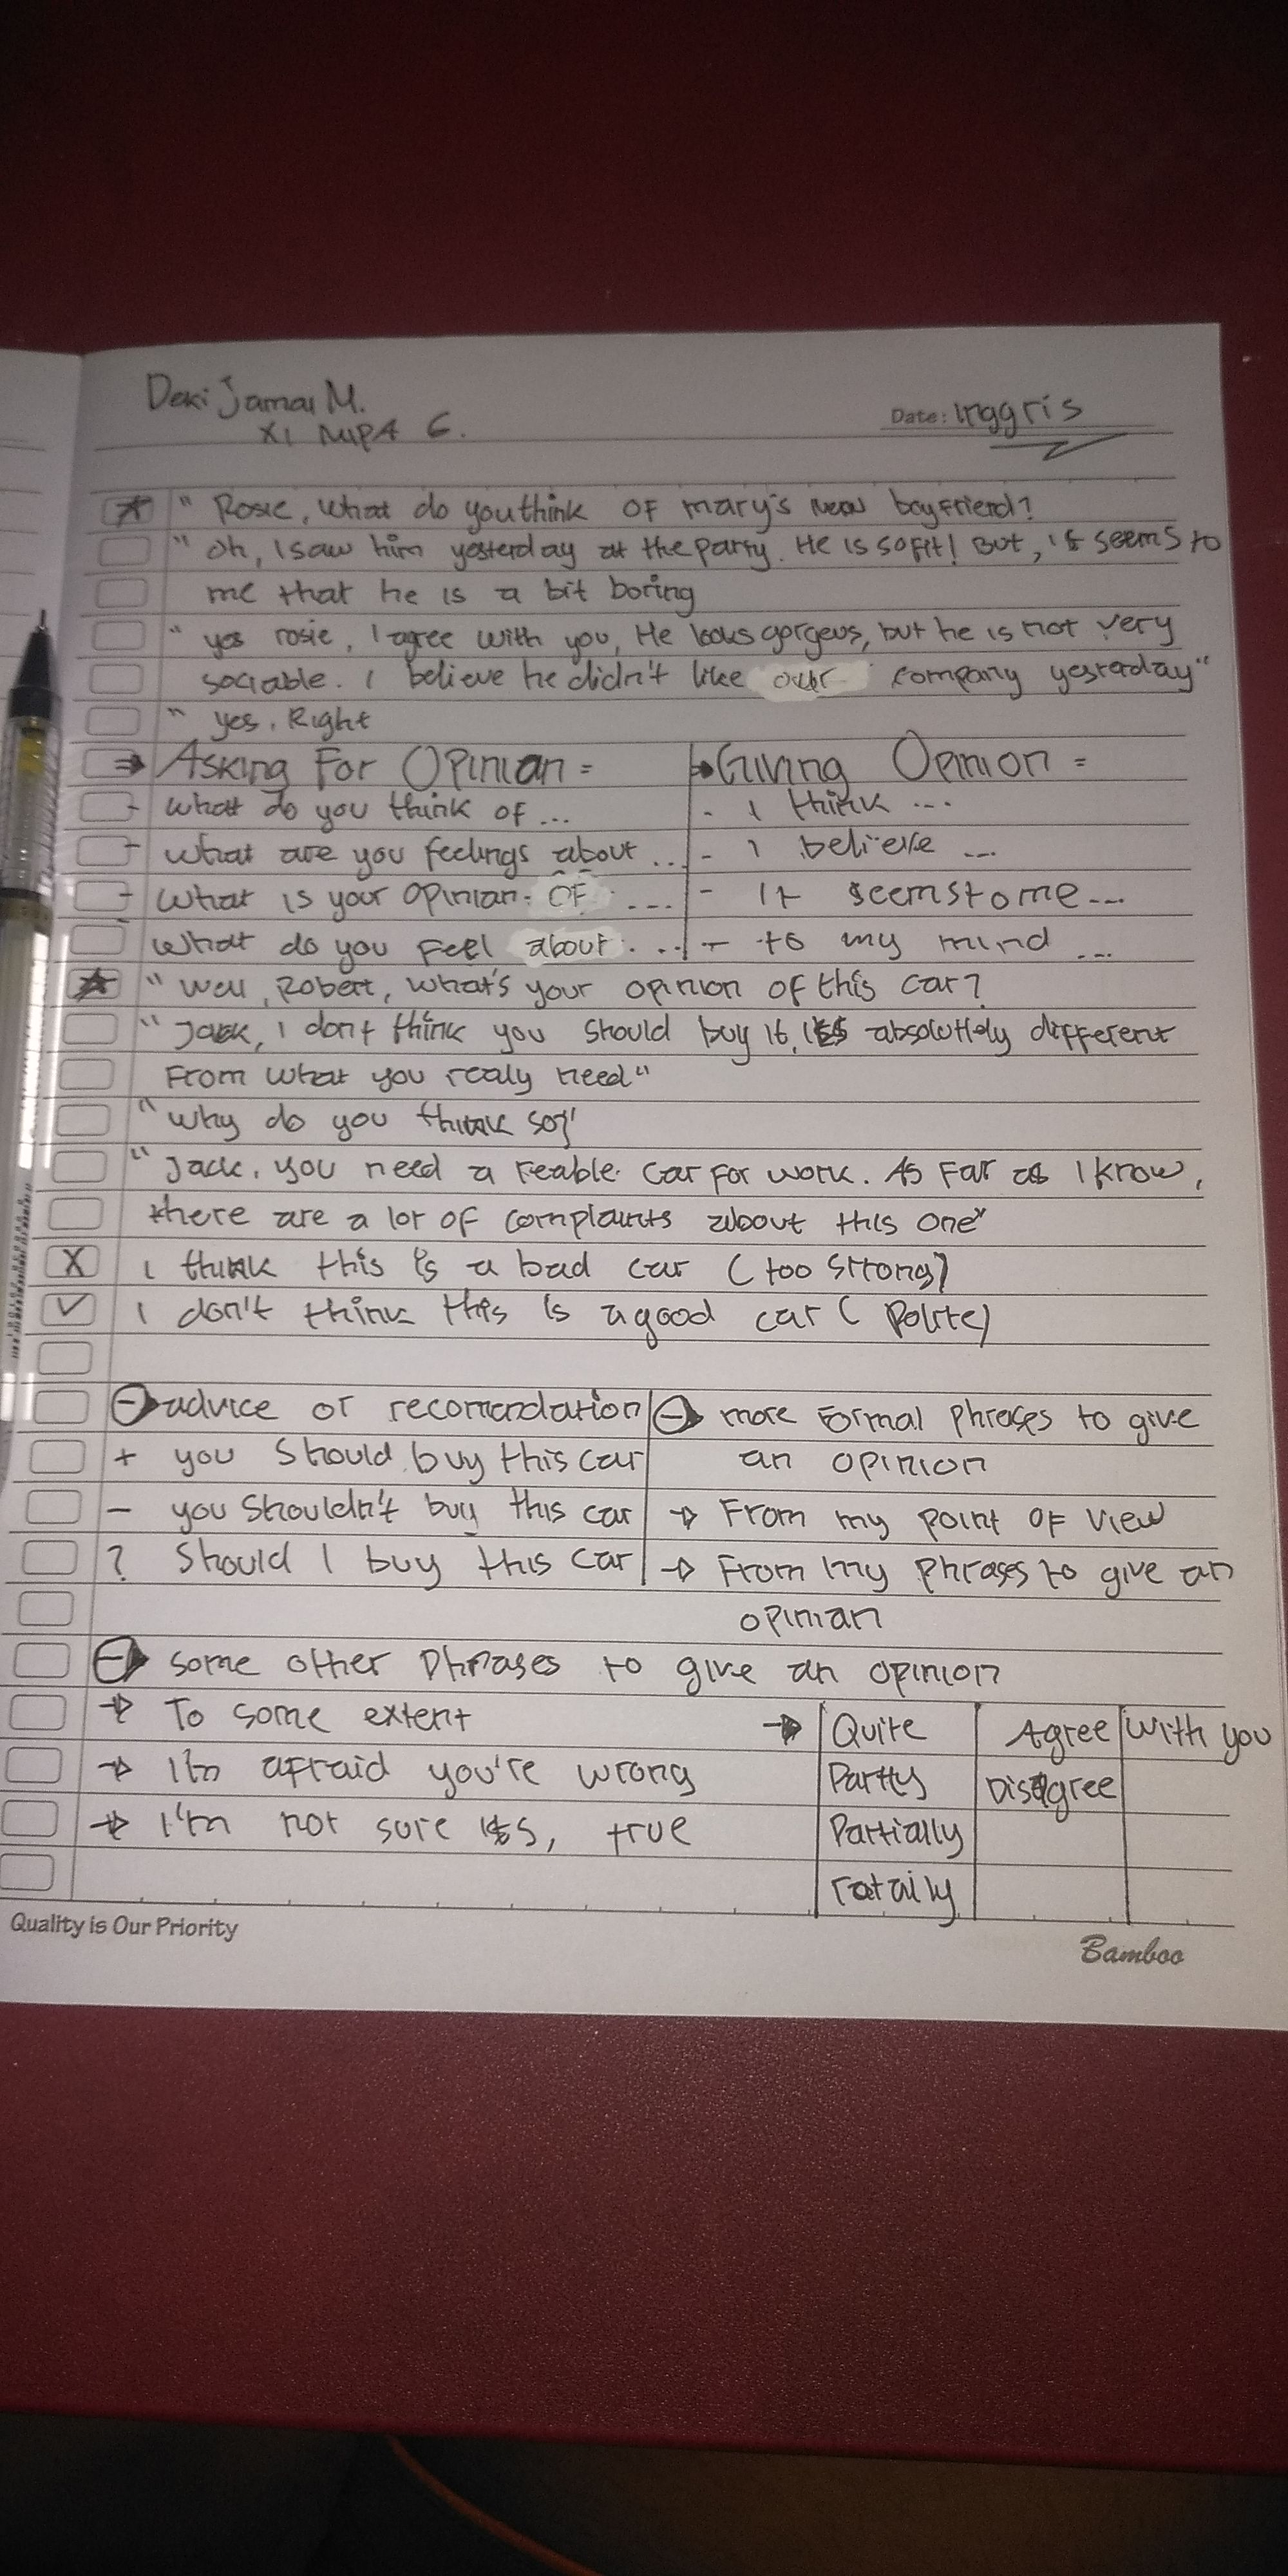 Deki Jamal M.
XI MIPA 6.
Date: Inggris
" Rosie, What do you think of mary's new boyfriend?
" Oh, I saw him yesterday at the party. He is so fit! But, it seems to
me that he is a bit boring
" yes rosie, I agree with you, He looks gorgeus, but he is not very
sociable. I believe he didn't like our company yesterday"
" yes. Right
⇒ Asking For Opinian =
- what do you think of ...
- what are you feelings about ...
- what is your opinian. OF ....
- what do you feel about ....
→ Giving Opinion =
- I think ...
- I believe ...
- It seems to me...
- to my mind ...
" Well, Robert, what's your opinion of this car?
" Jack, I don't think you should buy it, it's absolutely different
From what you realy need"
" why do you think so?"
" Jack, you need a reable car for work. As far as I know,
there are a lot of complaints about this one"
X I think this is a bad car (too strong)
✓ I don't think this is a good car (Polite)
advice or recomendation
+ you should buy this car
- you shouldn't buy this car
? Should I buy this car
more Formal phrases to give
an opinion
→ From my point of view
→ From my phrases to give an
opinian
some other Phrases to give an opinion
→ To some extent
→ I'm afraid you're wrong
→ I'm not sure it's, true
→ Quite Agree With you
Partly Disagree
Partially
Totally
Quality is Our Priority
Bamboo